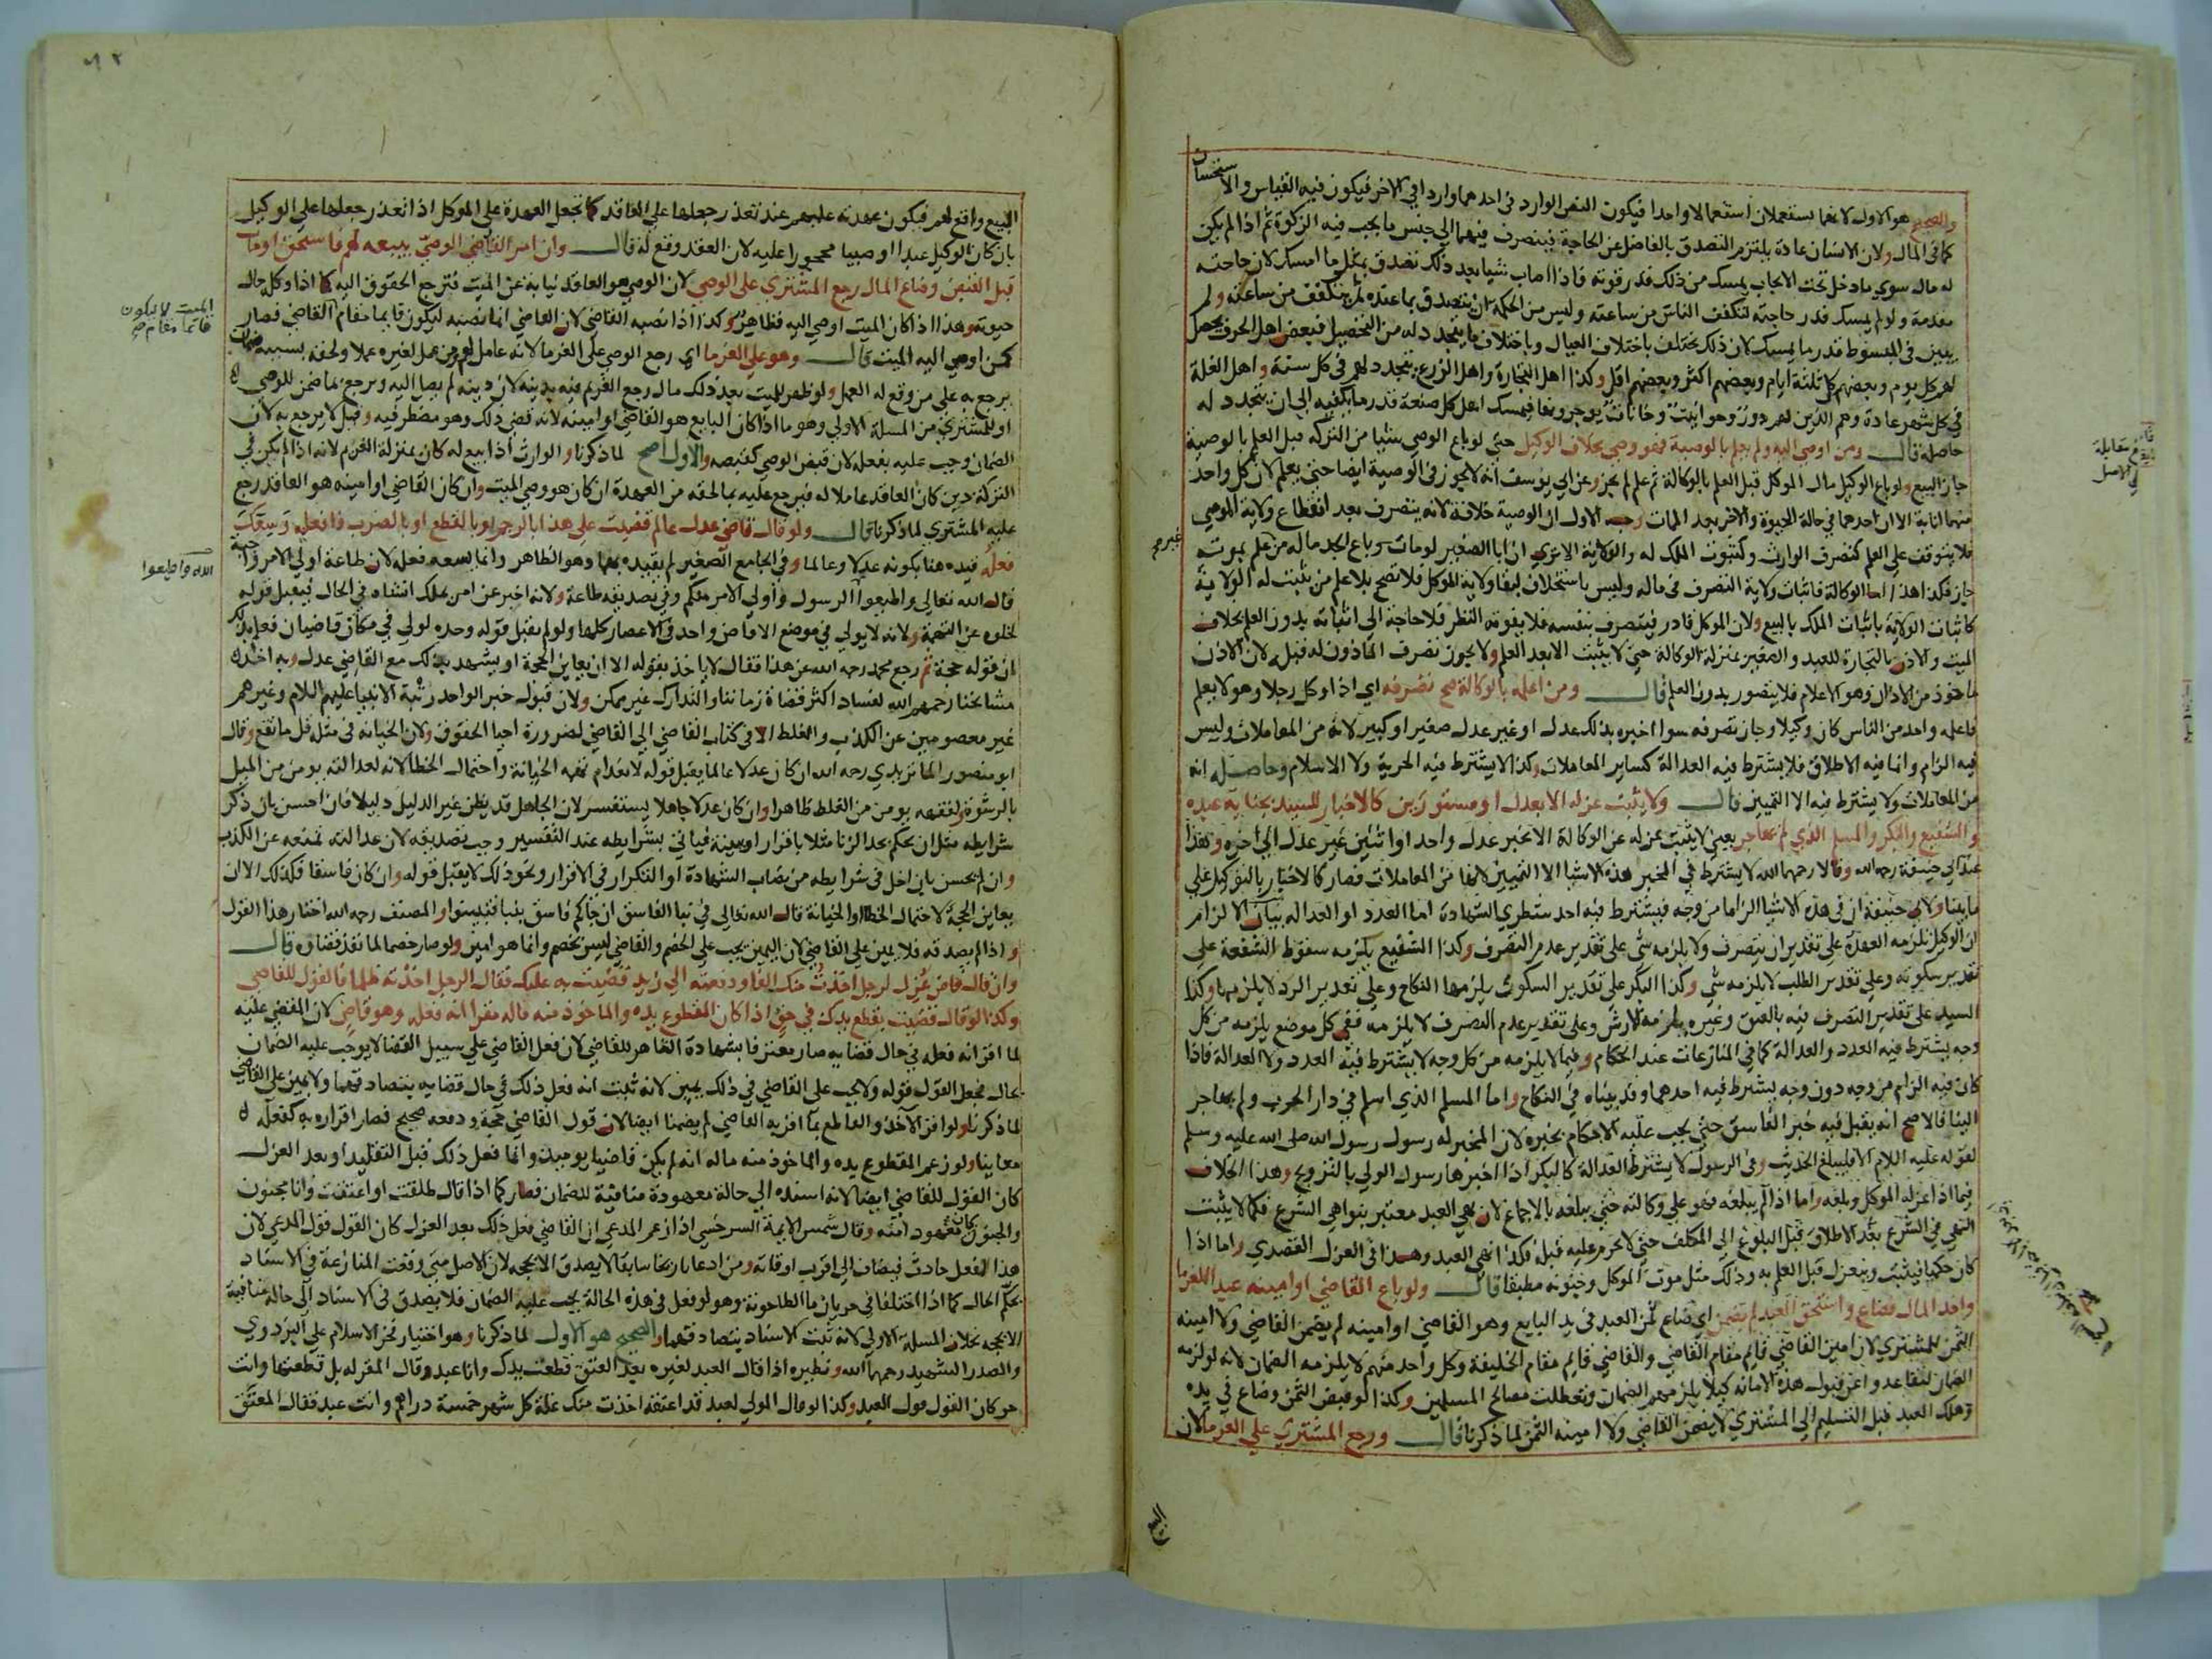 والصحيح هو الاول لانهما يستعملان استعمالا واحدا فيكون النص الوارد في احدهما واردا في الاخر فيكون فيه القياس والاستحسان
كما في المال ولان الانسان عادة يلتزم التصدق بالفاضل عن الحاجة فينصرف فيهما الي جنس ما يجب فيه الزكوة ثم اذا لم يكن
له مال سوي ما دخل تحت الايجاب يمسك من ذلك قدر قوته فاذا اصاب شيا بعد ذلك تصدق بمثل ما امسك لان حاجته
مقدمة ولو لم يمسك قدر حاجته لتكفف الناس من ساعته وليس من الحكمة ان يتصدق بما عنده ثم يتكفف من ساعته ولم
يبين في المبسوط قدر ما يمسك لان ذلك يختلف باختلاف العيال وباختلاف ما يتجدد له من التحصيل فبعض اهل الحرف يحصل
لهم كل يوم وبعضهم كل ثلثة ايام وبعضهم اكثر وبعضهم اقل وكذا اهل التجارة واهل الزرع يتجدد لهم في كل سنة واهل الغلة
في كل شهر عادة وهم الذين لهم دور وحوانيت وخانات يوجرونها فيمسك اهل كل صنعة قدر ما يكفيه الي ان يتجدد له
حاصله قال ومن اوصي اليه ولم يعلم بالوصية فهو وصي بخلاف الوكيل حتي لو باع الوصي شيا من التركه قبل العلم بالوصية
جاز البيع ولو باع الوكيل مال الموكل قبل العلم بالوكالة ثم علم لم يجز وعن ابي يوسف انه لا يجوز في الوصية ايضا حتي يعلم لان كل واحد
منهما انابة الا ان احدهما في حالة الحيوة والاخر بعد الممات وجه الاول ان الوصية خلافة لانه يتصرف بعد انقطاع ولاية الموصي
فلا يتوقف علي العلم كتصرف الوارث وكثبوت الملك له والولاية الا تري ان ابا الصغير لو مات وباع الجد ماله من غير علم بموته
جاز فكذا هذا اما الوكالة فاثبات ولاية التصرف في ماله وليس باستخلاف لبقا ولاية الموكل فلا تصح بلا علم من يثبت له الولاية
كاثبات الولاية باثبات الملك بالبيع ولان الموكل قادر فيتصرف بنفسه فلا يفوته النظر فلا حاجة الي اثباته بدون العلم بخلاف
الميت والاذن بالتجارة للعبد والصغير بمنزلة الوكالة حتي لا يثبت الا بعد العلم ولا يجوز تصرف الماذون له قبله لان الاذن
ماخوذ من الاذان وهو الاعلام فلا يتصور بدون العلم قال ومن اعلمه بالوكالة صح تصرفه اي اذا وكل رجلا وهو لا يعلم
فاعلمه واحد من الناس كان وكيلا وجاز تصرفه سوا اخبره بذلك عدل او غير عدل صغير او كبير لانه من المعاملات وليس
فيه الزام وانما فيه الاطلاق فلا يشترط فيه العدالة كساير المعاملات وكذا لا يشترط فيه الحرية ولا الاسلام وحاصله انه
من المعاملات ولا يشترط فيه الا التمييز قال ولا يثبت عزله الا بعدل او مستورين كالاخبار للسيد بجناية عبده
والشفيع والبكر والمسلم الذي لم يهاجر يعني لا يثبت عزله عن الوكالة الا بخبر عدل واحد او اثنين غير عدل الي اخره وهذا
عند ابي حنيفة رحمه الله وقالا رحمهما الله لا يشترط في المخبر هذه الاشيا الا التمييز لانها من المعاملات فصار كالاخبار بالتوكيل علي
ما بينا ولابي حنيفة ان في هذه الاشيا الزاما من وجه فيشترط فيه احد شطري الشهادة اما العدد او العدالة بيان الالزام
ان الوكيل تلزمه العهدة علي تقدير ان يتصرف ولا يلزمه شي علي تقدير عدم التصرف وكذا الشفيع يلزمه سقوط الشفعة علي
تقدير سكوته وعلي تقدير الطلب لا يلزمه شي وكذا البكر علي تقدير السكوت يلزمها النكاح وعلي تقدير الرد لا يلزمها وكذا
السيد علي تقدير التصرف فيه بالعتق وغيره يلزمه الارش وعلي تقدير عدم التصرف لا يلزمه ففي كل موضع يلزمه من كل
وجه يشترط فيه العدد والعدالة كما في المنازعات عند الحكام وفيما لا يلزمه من كل وجه لا يشترط فيه العدد ولا العدالة فاذا
كان فيه الزام من وجه دون وجه يشترط فيه احدهما وقد بيناه في النكاح واما المسلم الذي اسلم في دار الحرب ولم يهاجر
الينا فالاصح انه يقبل فيه خبر الفاسق حتي يجب عليه الاحكام بخبره لان المخبر له رسول رسول الله صلي الله عليه وسلم
لقوله عليه السلام الا فليبلغ الحديث وفي الرسول لا يشترط العدالة كالبكر اذا اخبرها رسول الولي بالتزويج وهذا الخلاف
فيما اذا عزله الموكل وبلغه واما اذا لم يبلغه فهو علي وكالته حتي يبلغه بالاجماع لان نهي العبد معتبر بنواهي الشرع فكما لا يثبت
النهي في الشرع بعد الاطلاق قبل البلوغ الي المكلف حتي لا يحرم عليه قبله فكذا نهي العبد وهذا في العزل القصدي واما اذا
كان حكميا فيثبت وينعزل قبل العلم به وذلك مثل موت الموكل وجنونه مطبقا قال ولو باع القاضي او امينه عبدا للغرما
واخذ المال فضاع واستحق العبد لم يضمن اي ضاع ثمن العبد في يد البايع وهو القاضي او امينه لم يضمن القاضي ولا امينه
الثمن للمشتري لان امين القاضي قايم مقام القاضي والقاضي قايم مقام الخليفة وكل واحد منهم لا يلزمه الضمان لانه لو لزمه
الضمان لتقاعدوا عن قبول هذه الامانة كيلا يلزمهم الضمان وتعطلت مصالح المسلمين وكذا لو قبض الثمن وضاع في يده
وهلك العبد قبل التسليم الي المشتري لا يضمن القاضي ولا امينه الثمن لما ذكرنا قال ورجع المشتري علي الغرما لان
البيع
غيره صح
بلغ مقابلة
في الاصل
٩٢
البيع واقع لهم فيكون عهدته عليهم عند تعذر جعلها علي العاقد كما تجعل العهدة علي الموكل اذا تعذر جعلها علي الوكيل
بان كان الوكيل عبدا او صبيا محجورا عليه لان العقد وقع له قال وان امر القاضي الوصي ببيعه لهم فاستحق او مات
قبل القبض وضاع المال رجع المشتري علي الوصي لان الوصي هو العاقد نيابة عن الميت فترجع الحقوق اليه كما اذا وكله حال
حيوته وهذا اذا كان الميت اوصي اليه فظاهر وكذا اذا نصبه القاضي لان القاضي انما نصبه ليكون قايما مقام القاضي فصار
كمن اوصي اليه الميت قال وهو علي الغرما اي رجع الوصي علي الغرما لانه عامل لهم ومن عمل لغيره عملا ولحقه بسببه ضمان
يرجع به علي من وقع له العمل ولو ظهر للميت بعد ذلك مال رجع الغريم فيه بدينه لان دينه لم يصل اليه ويرجع بما ضمن للوصي
او للمشتري من المسلة الاولي وهو ما اذا كان البايع هو القاضي او امينه لانه قضي ذلك وهو مضطر فيه وقيل لا يرجع به لان
الضمان وجب عليه بفعله لان قبض الوصي كقبضه والاول اصح لما ذكرنا والوارث اذا بيع له كان بمنزلة الغرم لانه اذا لم يكن في
التركة دين كان العاقد عاملا له فيرجع عليه بما لحقه من العهدة ان كان هو وصي الميت وان كان القاضي او امينه هو العاقد رجع
عليه المشتري لما ذكرنا قال ولو قال قاض عدل عالم قضيت علي هذا بالرجم او بالقطع او بالضرب فافعله وسعك
فعله قيده هنا بكونه عدلا وعالما وفي الجامع الصغير لم يقيده بهما وهو الظاهر وانما يسعه فعله لان طاعة اولي الامر واجبة
قال الله تعالي واطيعوا الرسول واولي الامر منكم وفي تصديقه طاعة ولانه اخبر عن امر يملك انشاه في الحال فيقبل قوله
لخلوه عن التهمة ولانه لا يولي في موضع الا قاض واحد في الاعصار كلها ولو لم يقبل قوله وحده لولي في مكان قاضيان فعلم بذلك
ان قوله حجة ثم رجع محمد رحمه الله عن هذا فقال لا ياخذ بقوله الا ان يعاين الحجة او يشهد بذلك مع القاضي عدل وبه اخذ
مشايخنا رحمهم الله لفساد اكثر قضاة زماننا والتدارك غير ممكن ولان قبول خبر الواحد رتبة الانبيا عليهم السلام وغيرهم
غير معصومين عن الكذب والغلط الا في كتاب القاضي الي القاضي لضرورة احيا الحقوق ولان الخيانة في مثله قل ما تقع وقال
ابو منصور الماتريدي رحمه الله ان كان عدلا عالما يقبل قوله لانعدام تهمة الخيانة واحتمال الخطا لانه لعدالته يومن من الميل
بالرشوة ولفقهه يومن من الغلط ظاهرا وان كان عدلا جاهلا يستفسر لان الجاهل قد يظن غير الدليل دليلا فان احسن بان ذكر
شرايطه مثل ان يحكم بحد الزنا مثلا باقرار او بينة فياتي بشرايطه عند التفسير وجب تصديقه لان عدالته تمنعه عن الكذب
وان لم يحسن بان اخل في شرايطه من نصاب الشهادة او التكرار في الاقرار ونحو ذلك لا يقبل قوله وان كان فاسقا فكذلك الا ان
يعاين الحجة لاحتمال الخطا والخيانة قال الله تعالي في نبا الفاسق ان جاكم فاسق بنبا فتبينوا والمصنف رحمه الله اختار هذا القول
واذا لم يصدقه فلا يمين علي القاضي لان اليمين يجب علي الخصم والقاضي ليس بخصم وانما هو امين ولو صار خصما لما نفذ قضاوه قال
وان قال قاض عزل لرجل اخذت منك الفا ودفعته الي زيد قضيت به عليك فقال الرجل اخذته ظلما فالقول للقاضي
وكذا لو قال قضيت بقطع يدك في حق اذا كان المقطوع يده والماخوذ منه ماله مقرا انه فعله وهو قاض لان المقضي عليه
لما اقر انه فعله في حال قضايه صار معترفا بشهادة الظاهر للقاضي لان فعل القاضي علي سبيل القضا لا يوجب عليه الضمان
بحال فجعل القول قوله ولا يجب علي القاضي في ذلك يمين لانه ثبت انه فعل ذلك في حال قضايه بتصادقهما ولا يمين علي القاضي
لما ذكرنا ولو اقر الاخذ والقاطع بما اقر به القاضي لم يضمنا ايضا لان قول القاضي حجة ودفعه صحيح فصار اقراره به كفعله
معاينا ولو زعم المقطوع يده والماخوذ منه ماله انه لم يكن قاضيا يوميذ وانما فعل ذلك قبل التقليد او بعد العزل
كان القول للقاضي ايضا لانه اسنده الي حالة معهودة منافية للضمان فصار كما اذا قال طلقت او اعتقت وانا مجنون
والجنون كان معهودا منه وقال شمس الايمة السرخسي اذا زعم المدعي ان القاضي فعل ذلك بعد العزل كان القول قول المدعي لان
هذا الفعل حادث فيضاف الي اقرب اوقاته ومن ادعا تاريخا سابقا لا يصدق الا بحجه لان الاصل متي وقعت المنازعة في الاسناد
يحكم الحال كما اذا اختلفا في جريان ما الطاحونة وهو لو فعل في هذه الحالة يجب عليه الضمان فلا يصدق في الاسناد الي حالة منافية
الا بحجه بخلاف المسلة الاولي لانه ثبت الاسناد بتصادقهما والصحيح هو الاول لما ذكرنا وهو اختيار فخر الاسلام علي البزدوي
والصدر الشهيد رحمهما الله ونظيره اذا قال العبد لغيره بعد العتق قطعت يدك وانا عبد وقال المقر له بل قطعتها وانت
حر كان القول قول العبد وكذا لو قال المولي لعبد قد اعتقه اخذت منك غلة كل شهر خمسة دراهم وانت عبد فقال المعتق
الميت لا يكون
قائما مقام صح
الله واطيعوا